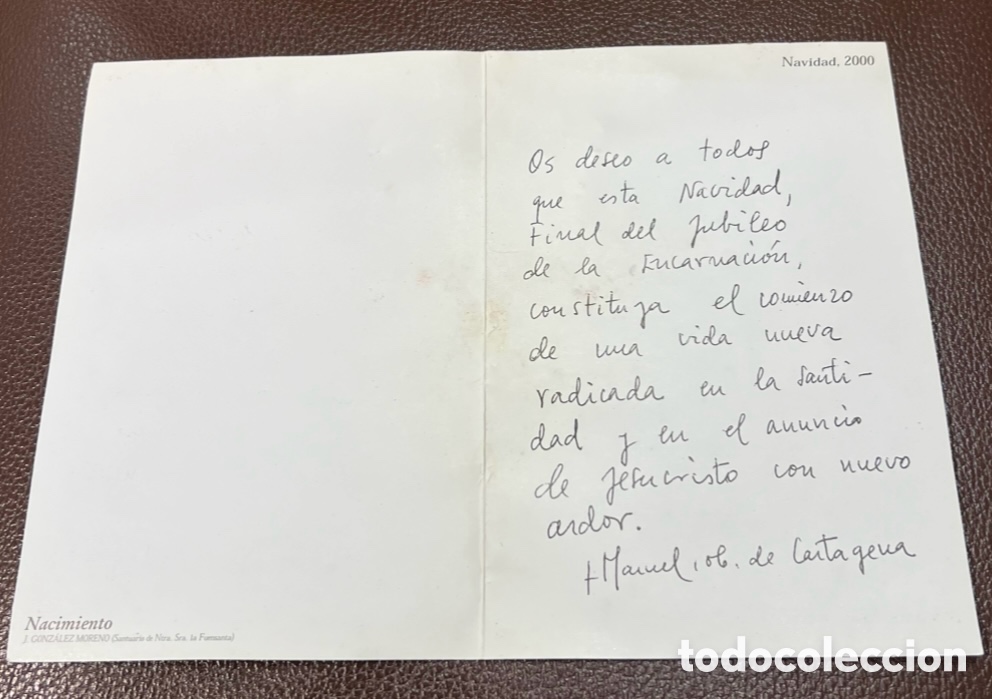 Navidad, 2000
Os deseo a todos
que esta Navidad,
Final del Jubileo
de la Encarnación,
constituya el comienzo
de una vida nueva
radicada en la Santi-
dad y en el anuncio
de Jesucristo con nuevo
ardor.
+ Manuel, ob. de Cartagena
Nacimiento
J. GONZÁLEZ MORENO (Santuario de Ntra. Sra. la Fuensanta)
todocoleccion